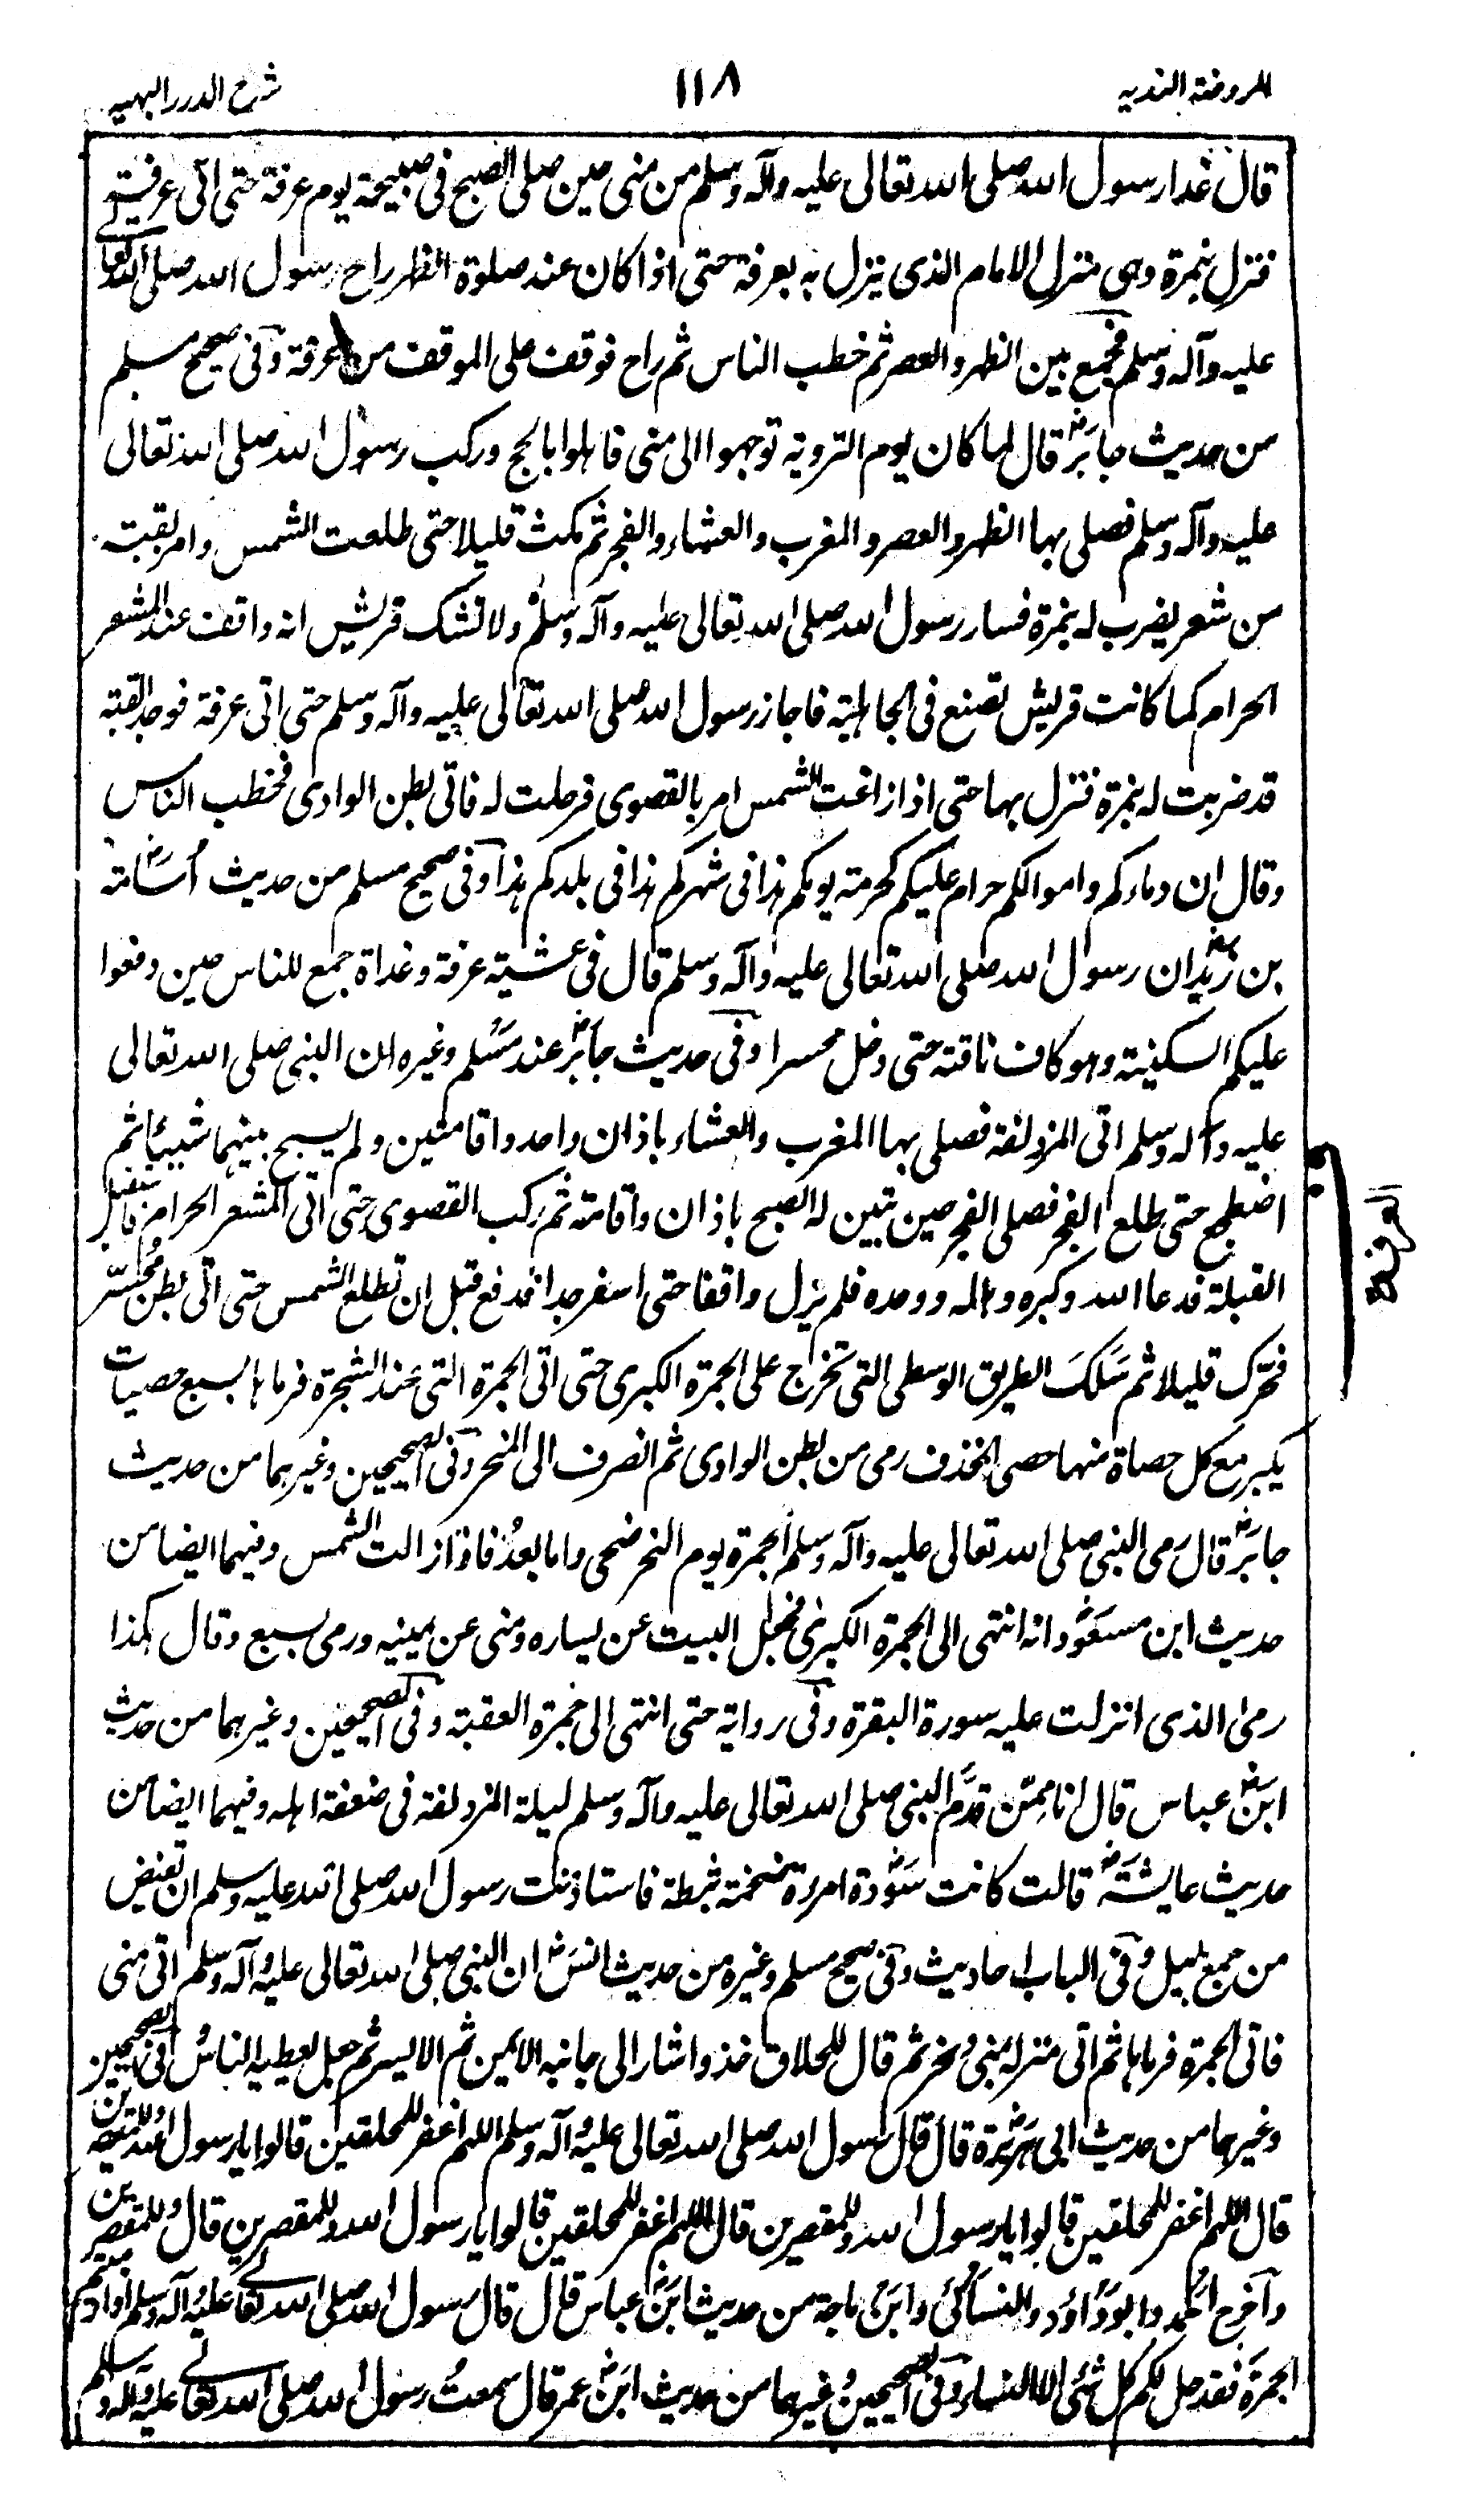 الروضة الندیه ١١٨ شرح الدرر البهیه
قال غدا رسول الله صلى الله تعالى علیه وآله وسلم من منى حین صلى الصبح فی صبیحة یوم عرفة حتى اتى عرفة
فنزل بنمرة وهی منزل الامام الذی ینزل به بعرفة حتى اذا كان عند صلوة الظهر راح رسول الله صلى الله تعالى
علیه وآله وسلم فجمع بین الظهر والعصر ثم خطب الناس ثم راح فوقف على الموقف من عرفة وفی صحیح مسلم
من حدیث جابر قال لما كان یوم الترویة توجهوا الى منى فاهلوا بالحج وركب رسول الله صلى الله تعالى
علیه وآله وسلم فصلى بها الظهر والعصر والمغرب والعشاء والفجر ثم مكث قلیلا حتى طلعت الشمس وامر بقبة
من شعر یضرب له بنمرة فسار رسول الله صلى الله تعالى علیه وآله وسلم ولا تشك قریش انه واقف عند المشعر
الحرام كما كانت قریش تصنع فی الجاهلیة فاجاز رسول الله صلى الله تعالى علیه وآله وسلم حتى اتى عرفة فوجد القبة
قد ضربت له بنمرة فنزل بها حتى اذا زاغت الشمس امر بالقصوى فرحلت له فاتى بطن الوادی فخطب الناس
وقال ان دماءكم واموالكم حرام علیكم كحرمة یومكم هذا فی شهركم هذا فی بلدكم هذا وفی صحیح مسلم من حدیث أسامة
بن زید ان رسول الله صلى الله تعالى علیه وآله وسلم قال فی عشیة عرفة وغداة جمع للناس حین دفعوا
علیكم السكینة وهو كاف ناقته حتى دخل محسرا وفی حدیث جابر عند مسلم وغیره ان النبی صلى الله تعالى
علیه وآله وسلم اتى المزدلفة فصلى بها المغرب والعشاء باذان واحد واقامتین ولم یسبح بینهما شیئا ثم
اضطجع حتى طلع الفجر فصلى الفجر حین تبین له الصبح باذان واقامة ثم ركب القصوى حتى اتى المشعر الحرام فاستقبل
القبلة فدعا الله وكبره وهلله ووحده فلم یزل واقفا حتى اسفر جدا فدفع قبل ان تطلع الشمس حتى اتى بطن مُحسّر
فحرّك قلیلا ثم سَلكَ الطریق الوسطى التی تخرج على الجمرة الكبرى حتى اتى الجمرة التی عند الشجرة فرماها بسبع حصیات
یكبر مع كل حصاة منها حصى الخذف رمى من بطن الوادی ثم انصرف الى المنحر وفی الصحیحین وغیرهما من حدیث
جابر قال رمى النبی صلى الله تعالى علیه وآله وسلم الجمرة یوم النحر ضحى واما بعدُ فاذا زالت الشمس وفیهما ایضا من
حدیث ابن مسعود انه انتهى الى الجمرة الكبرى فجعل البیت عن یساره ومنى عن یمینه ورمى بسبع وقال هكذا
رمى الذی انزلت علیه سورة البقرة وفی روایة حتى انتهى الى جمرة العقبة وفی الصحیحین وغیرهما من حدیث
ابن عباس قال انا مِمّن قدّم النبی صلى الله تعالى علیه وآله وسلم لیلة المزدلفة فی ضعفة اهله وفیهما ایضا من
حدیث عایشة قالت كانت سودة امرءة ضخمة ثبطة فاستاذنت رسول الله صلى الله علیه وسلم ان تفیض
من جمع بلیل وفی الباب احادیث وفی صحیح مسلم وغیره من حدیث انس ان النبی صلى الله تعالى علیه وآله وسلم اتى منى
فاتى الجمرة فرماها ثم اتى منزله بمنى ونحر ثم قال للحلاق خذ واشار الى جانبه الایمن ثم الایسر ثم جعل یعطیه الناس وفی الصحیحین
وغیرهما من حدیث ابی هریرة قال قال رسول الله صلى الله تعالى علیه وآله وسلم اللهم اغفر للمحلقین قالوا یا رسول الله وللمقصرین
قال اللهم اغفر للمحلقین قالوا یا رسول الله وللمقصرین قال اللهم اغفر للمحلقین قالوا یا رسول الله وللمقصرین قال وللمقصرین
وآخرج احمد وابو داؤد والنسائی وابن ماجة من حدیث ابن عباس قال قال رسول الله صلى الله تعالى علیه وآله وسلم اذا رمیتم
الجمرة فقد حل لكم كل شئی الا النساء وفی الصحیحین وغیرهما من حدیث ابن عمر قال سمعتُ رسول الله صلى الله تعالى علیه وآله وسلم